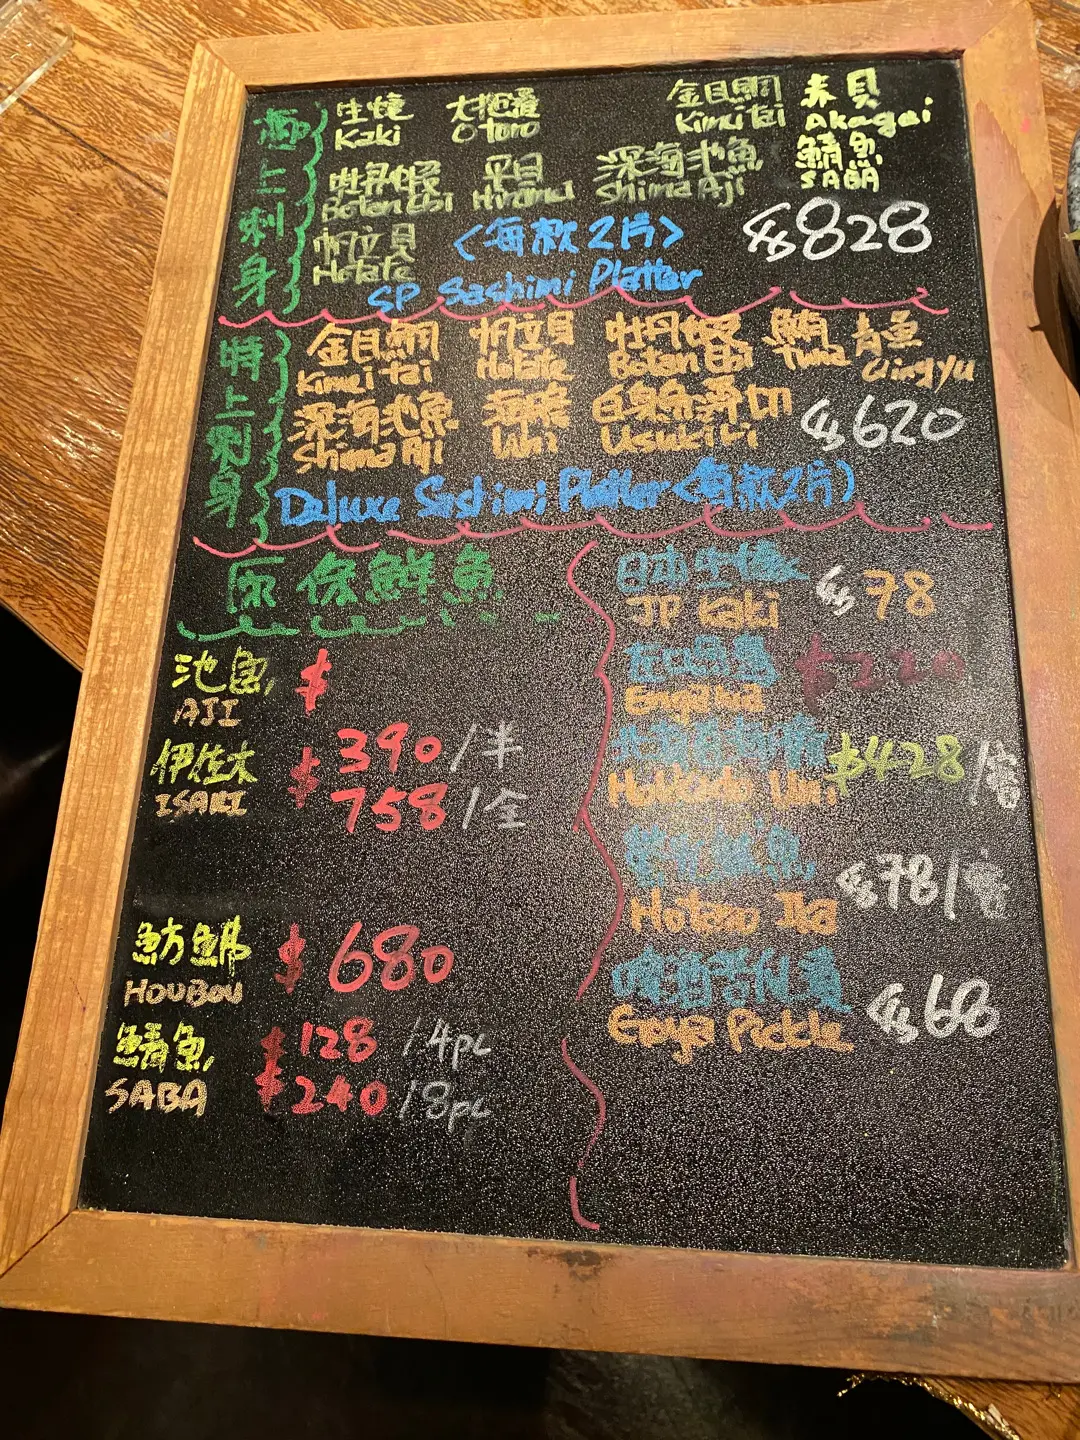 極上刺身
生蠔 大拖羅 金目鯛 赤貝
Kaki Otoro Kimeitai Akagai
牡丹蝦 平目 深海池魚 鯖魚
Botan Ebi Hirame Shima Aji SABA
帆立貝 〈每款2片〉 $828
Hotate SP Sashimi Platter
特上刺身
金目鯛 帆立貝 牡丹蝦 鮪 青魚
Kimei tai Hotate Botan Ebi Tuna Qingyu
深海池魚 海膽 白身魚薄切 $620
Shima Aji Uni Usukiri
Deluxe Sashimi Platter〈每款2片〉
原条鮮魚
池魚 $
AJI
伊佐木 $390/半
ISAKI 758/全
魴鮄 $680
HOUBOU
鯖魚 $128 /4pc
SABA $240 /8pc
日本生蠔 $78
JP Kaki
左口魚邊 $220
Engawa
$428/客
Hokkaido Uni
$78/客
Hotaru Ika
$68
Goya Pickle